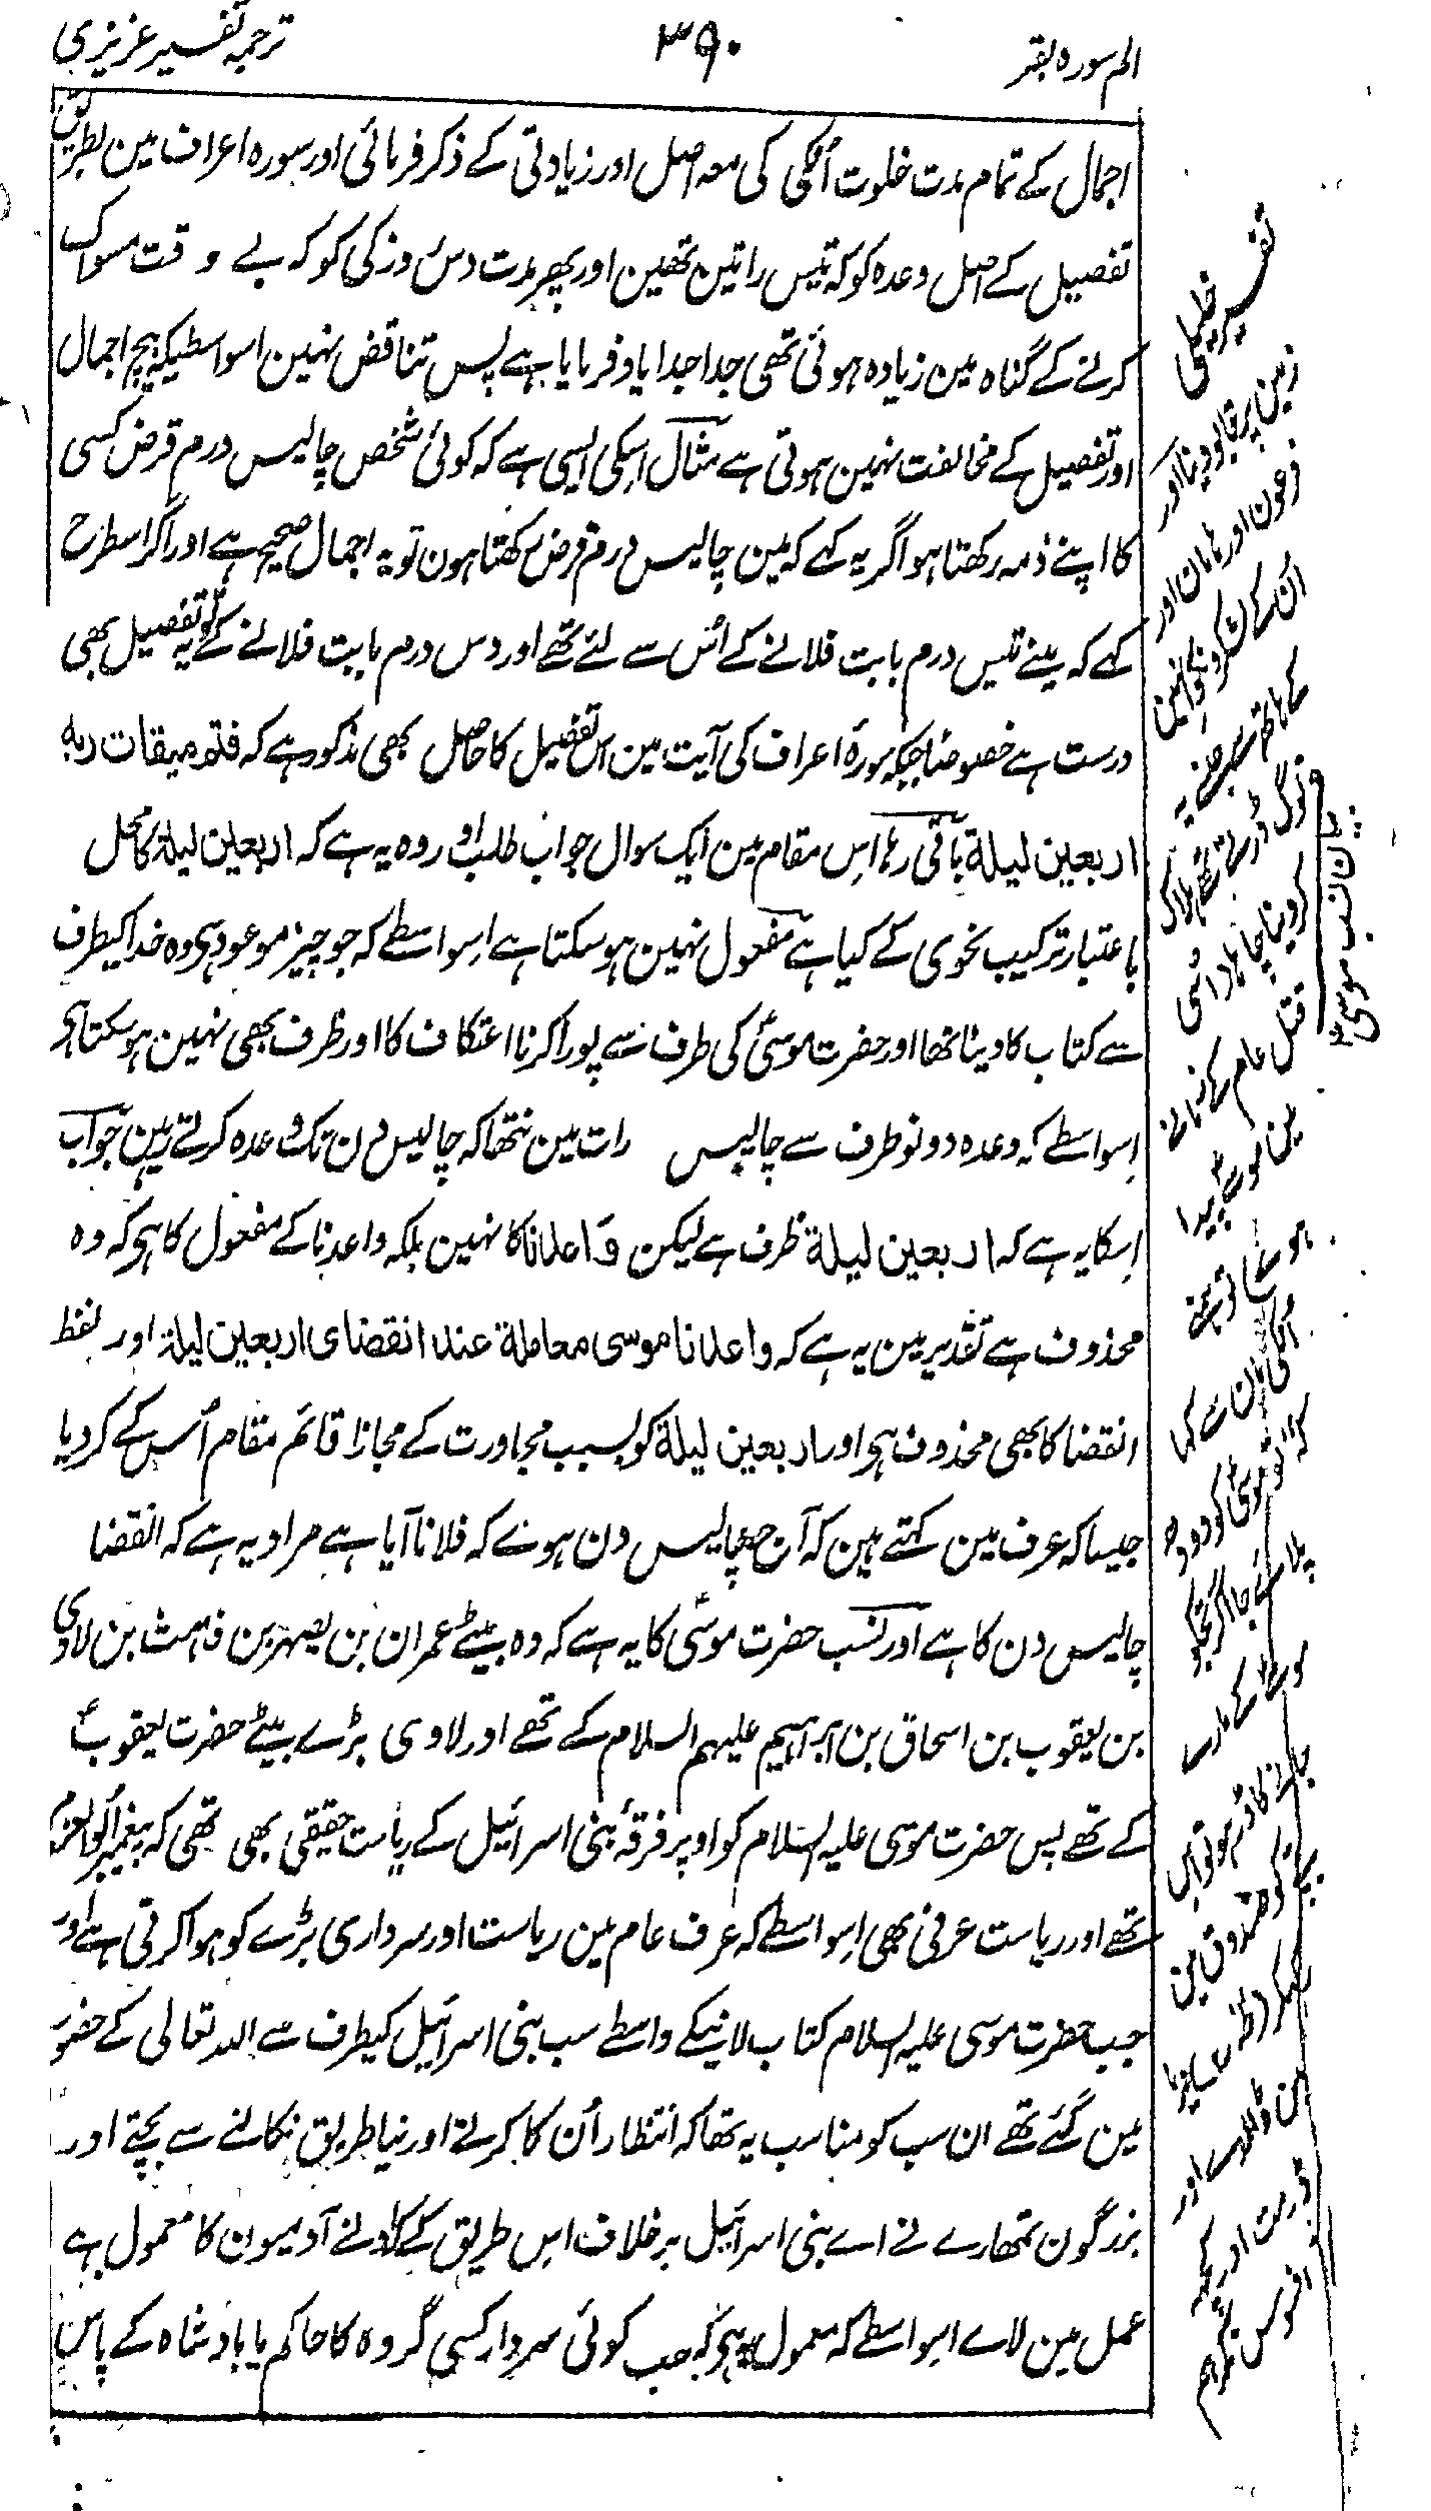 الم سورہ بقر
۳۹۰
ترجمہ تفسیر عزیزی
اجمال کے تمام مدت خلوت اُنکی کی معہ اصل اور زیادتی کے ذکر فرمائی اور سورہ اعراف مین بطریق
تفصیل کے اصل وعدہ کو کہ تیس راتین تھین اور پھر مدت دس روز کی کو کہ بے وقت مسواک
کرنے کے گناہ مین زیادہ ہوئی تھی جدا جدا یاد فرمایا ہے پس تناقض نہین اسواسطیکہ بیچ اجمال
اور تفصیل کے مخالفت نہین ہوتی ہے مثال اِسکی ایسی ہے کہ کوئی شخص چالیس درم قرض کسی
کا اپنے ذمہ رکھتا ہو اگر یہ کہے کہ مین چالیس درم قرض رکھتا ہون تو یہ اجمال صحیح ہے اور اگر اسطرح
کہے کہ مینے تیس درم بابت فلانے کے اُس سے لئے تھے اور دس درم بابت فلانے کے تو یہ تفصیل بھی
درست ہے خصوصًا جبکہ سورۂ اعراف کی آیت مین اس تفصیل کا حاصل بھی مذکور ہے کہ فتم میقات ربہ
اربعین لیلة باقی رہا اِس مقام مین ایک سوال جواب طلب اور وہ یہ ہے کہ اربعین لیلة کا محل
باعتبار ترکیب نحوی کے کیا ہے مفعول نہین ہو سکتا ہے اِسواسطے کہ جو چیز موعود ہی وہ خدا کیطرف
سے کتاب کا دینا تھا اور حضرت موسیٰؑ کی طرف سے پورا کرنا اعتکاف کا اور ظرف بھی نہین ہو سکتا ہی
اِسواسطے کہ وعدہ دونو طرف سے چالیس رات مین نتھا کہ چالیس دن تک وعدہ کرتے رہین جواب
اِسکا یہ ہے کہ اربعین لیلة ظرف ہے لیکن وَاعدنا کا نہین بلکہ واعدنا کے مفعول کا ہی کہ وہ
محذوف ہے تقدیر مین یہ ہے کہ واعدنا موسی معاملة عند انقضای اربعین لیلة اور لفظ
انقضا کا بھی محذوف ہی اور اربعین لیلة کو بسبب مجاورت کے مجازًا قائم مقام اُس کے کر دیا
جیسا کہ عرف مین کہتے ہین کہ آج چالیس دن ہوے کہ فلانا آیا ہے مراد یہ ہے کہ انقضا
چالیس دن کا ہے اور نسب حضرت موسیٰؑ کا یہ ہے کہ وہ بیٹے عمران بن یصہر بن قاہث بن لاوی
بن یعقوب بن اسحاق بن ابراہیم علیہم السلام کے تھے اور لاوی بڑے بیٹے حضرت یعقوبؑ
کے تھے پس حضرت موسی علیہ السلام کو اوپر فرقۂ بنی اسرائیل کے ریاست حقیقی بھی تھی کہ پیغمبر اُولوالعزم
تھے اور ریاست عرفی بھی اِسواسطے کہ عرف عام مین ریاست اور سرداری بڑے کو ہوا کرتی ہے اور
جب حضرت موسی علیہ السلام کتاب لانیکے واسطے سب بنی اسرائیل کیطرف سے اللہ تعالی کے حضور
مین گئے تھے ان سب کو مناسب یہ تھا کہ انتظار اُن کا کرتے اور نیا طریق نکالنے سے بچتے اور
بزرگون تمھارے نے اے بنی اسرائیل برخلاف اِس طریق کے کہ ادنے آدمیون کا معمول ہے
عمل مین لاے اِسواسطے کہ معمول یہ ہی کہ جب کوئی سردار کسی گروہ کا حاکم یا بادشاہ کے پاس
زمین پر قابو دینا اور
فرعون اور ہامان اور
قتل عام کے زمانہ
بیان نسب موسیٰؑ